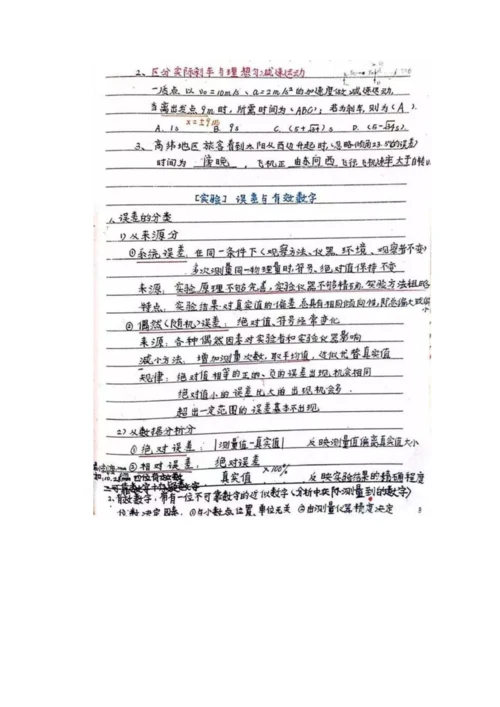 2、区分实际刹车与理想匀减速运动
一质点以v₀=10m/s、a=2m/s²的加速度做减速运动,
当离出发点9m时,所需时间为(ABC);若为刹车,则为(A).
x=±9m
A.1s B.9s C.(5+√34)s D.(5-√34)s
3、高纬地区旅客看到太阳从西边升起时,
时间为 傍晚 ,飞机正 由东向西 飞行,飞机速率大于自转
[实验] 误差与有效数字
1、误差的分类
1)从来源分
①系统误差:在同一条件下(观察方法、仪器、环境、观察者不变)
多次测量同一物理量时,符号、绝对值保持不变
来源:实验原理不够完善,实验仪器不够精确,实验方法粗略
特点:实验结果对真实值的偏差总具有相同倾向性,即总偏大或偏小
②偶然(随机)误差:绝对值、符号经常变化
来源:各种偶然因素对实验者和实验仪器影响
减小方法:增加测量次数,取平均值,近似代替真实值
规律:绝对值相等的正的、负的误差出现机会相同
绝对值小的误差比大的出现机会多.
超出一定范围的误差基本不出现
2)从数据分析分
①绝对误差:|测量值-真实值| 反映测量值偏离真实值大小
②相对误差:绝对误差
真实值 ×100% 反映实验结果的精确程度
四位有效数
2、有效数字:带有一位不可靠数字的近似数字(分析中实际测量到的数字)
决定因素:①与小数点位置、单位无关 ②由测量仪器精度决定
3